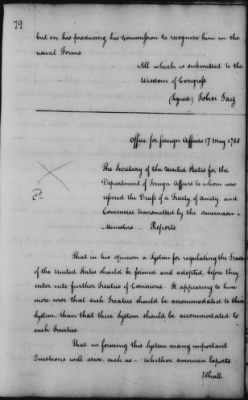 79
but on his producing his Commission to recognize him in the
usual Forms
All which is submitted to the
Wisdom of Congress
(Signed) John Jay
Office for foreign Affairs 17 May 1785
The Secretary of the United States for the
Department of Foreign Affairs to whom was
referred the Draft of a Treaty of Amity and
Commerce transmitted by the American
Ministers Reports
That in his opinion a System for regulating the Trade
of the United States should be formed and adopted, before they
enter into further Treaties of Commerce It appearing to him
more wise that such Treaties should be accommodated to their
System, than that their System should be accommodated to
such Treaties.
That in forming this System many important
Questions will arise, such as — whether American Exports
shall